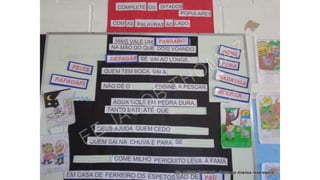 COMPLETE OS DITADOS
POPULARES
COM AS PALAVRAS AO LADO
MAIS VALE UM PÁSSARO
NA MÃO DO QUE DOIS VOANDO.
DEVAGAR SE VAI AO LONGE.
QUEM TEM BOCA VAI A
NÃO DÊ O ENSINE A PESCAR.
ÁGUA MOLE EM PEDRA DURA,
TANTO BATE ATÉ QUE
DEUS AJUDA QUEM CEDO
QUEM SAI NA CHUVA É PARA SE
COME MILHO PERIQUITO LEVA A FAMA.
EM CASA DE FERREIRO OS ESPETOS SÃO DE PAU
PEIXE
PAPAGAIO
ROMA
FURA
MADRUGA
MOLHAR